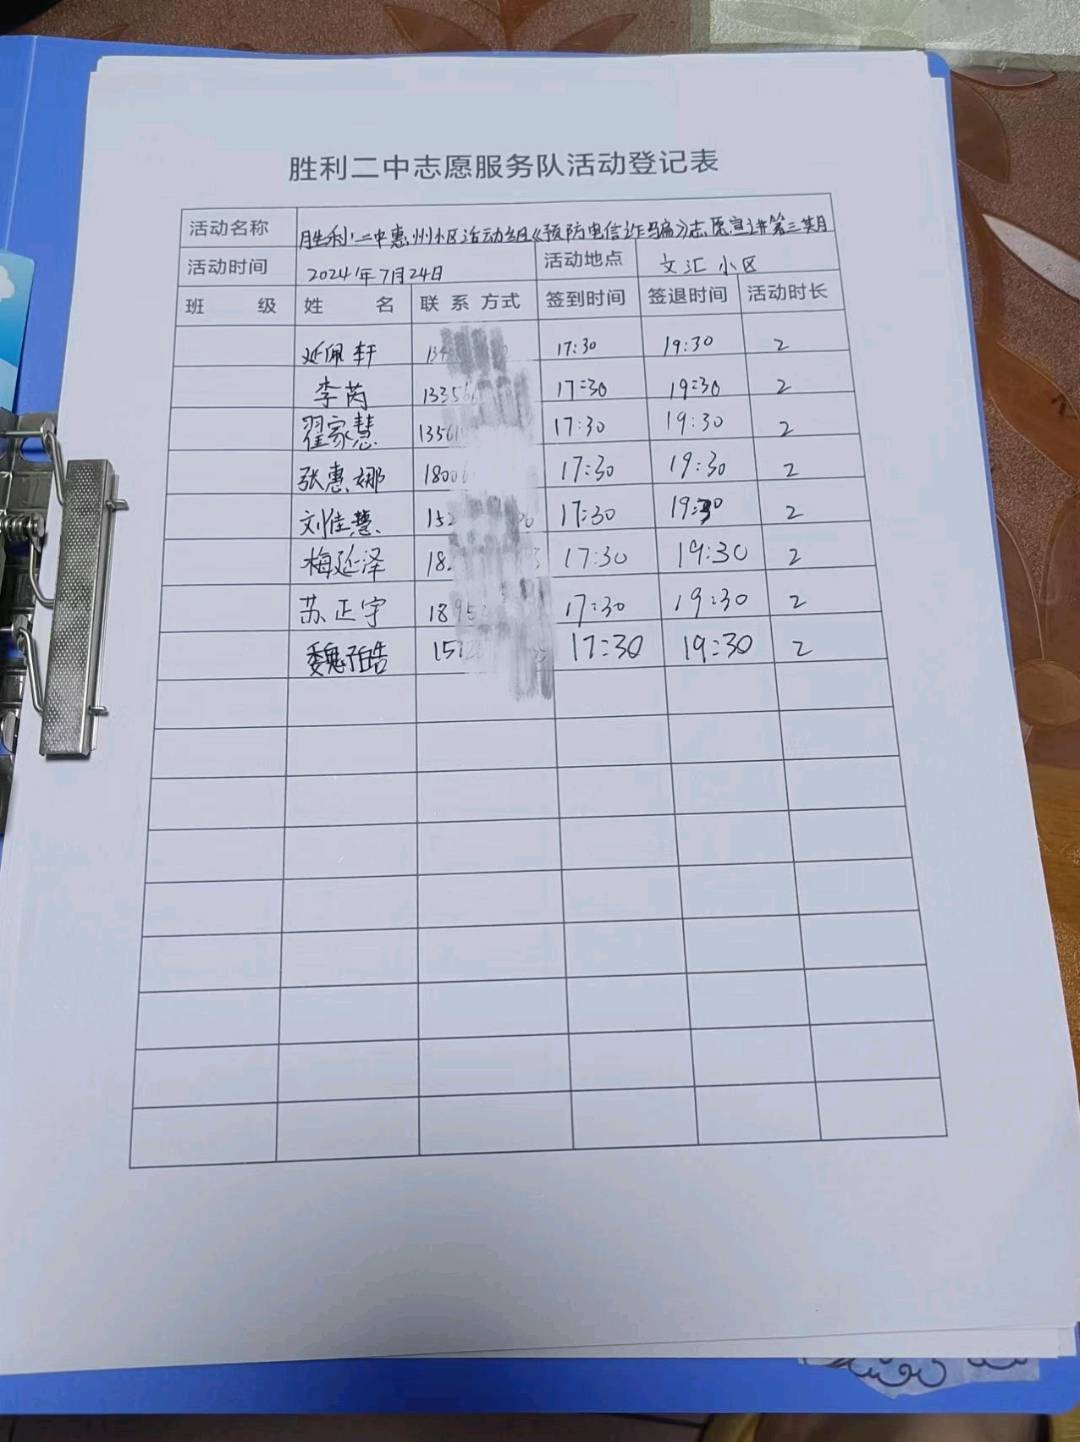 胜利二中志愿服务队活动登记表
活动名称 胜利二中惠州小区活动组《预防电信诈骗》志愿宣讲第三期
活动时间 2024年7月24日 活动地点 文汇小区
班 级 姓 名 联系方式 签到时间 签退时间 活动时长
延佩轩 17:30 19:30 2
李芮 1335 17:30 19:30 2
翟家慧 1356 17:30 19:30 2
张惠娜 1800 17:30 19:30 2
刘佳慧 152 17:30 19:30 2
梅延泽 18 17:30 19:30 2
苏正宇 1895 17:30 19:30 2
魏 15 17:30 19:30 2